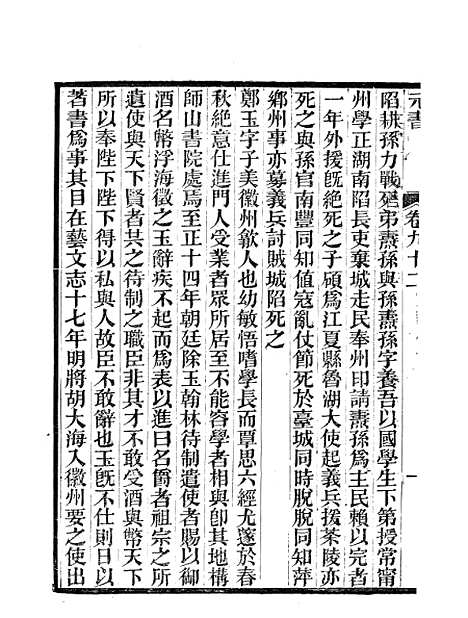 元書 卷九十二
陷耕孫力戰死弟燾孫與孫燾孫字養吾以國學生下第授常寧
州學正湖南陷長吏棄城走民奉州印請燾孫爲主民賴以完者
一年外援旣絶死之子碩爲江夏縣魯湖大使起義兵援茶陵亦
死之與孫官南豐同知值寇亂仗節死於臺城同時脫脫同知萍
鄉州事亦募義兵討賊城陷死之
鄭玉字子美徽州歙人也幼敏悟嗜學長而覃思六經尤邃於春
秋絶意仕進門人受業者眾所居至不能容學者相與卽其地構
師山書院處焉至正十四年朝廷除玉翰林待制遣使者賜以御
酒名幣浮海徵之玉辭疾不起而爲表以進曰名爵者祖宗之所
遺使與天下賢者共之待制之職臣非其才不敢受酒與幣天下
所以奉陛下陛下得以私與人故臣不敢辭也玉旣不仕則日以
著書爲事其目在藝文志十七年明將胡大海入徽州要之使出